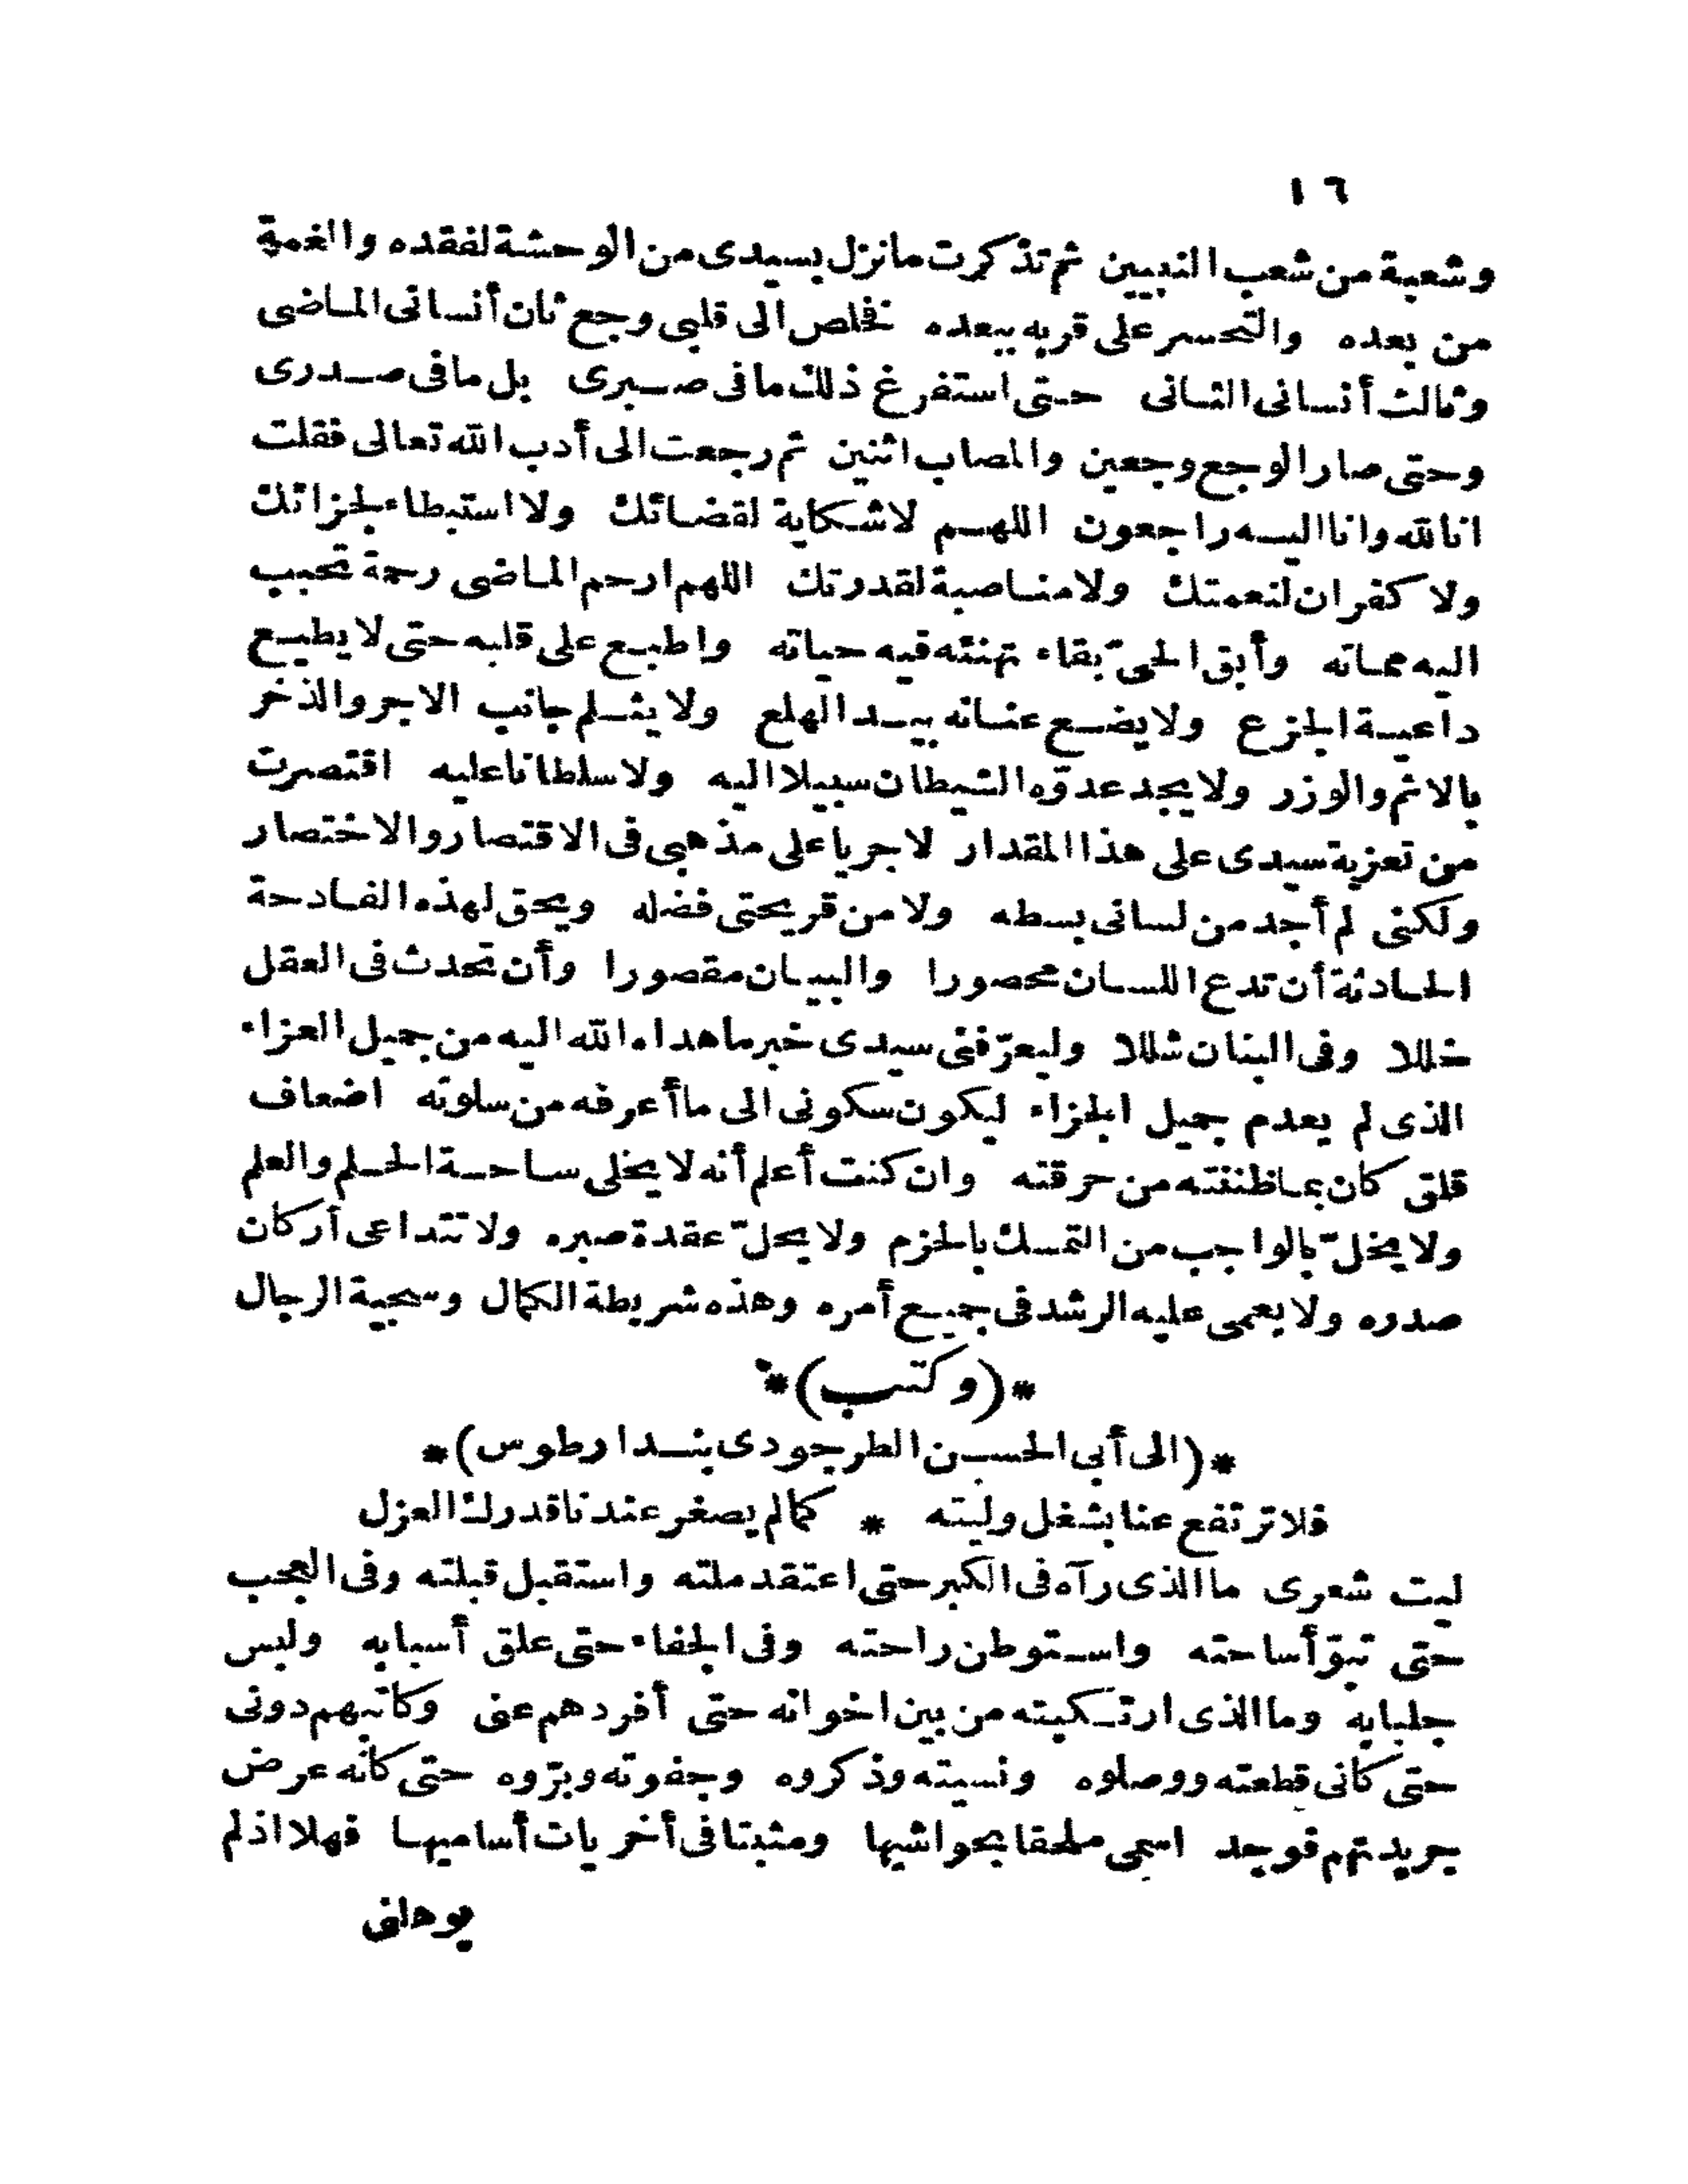 ١٦
وشعبة من شعب النبيين ثم تذكرت ما نزل بسيدى من الوحشة لفقده والغمة
من بعده والتحسر على قربه ببعده فخلص الى قلبى وجع ثان أنسانى الماضى
وثالث أنسانى الثانى حتى استفرغ ذلك ما فى صبرى بل ما فى صدرى
وحتى صار الوجع وجعين والمصاب اثنين ثم رجعت الى أدب الله تعالى فقلت
انا لله وانا اليه راجعون اللهم لا شكاية لقضائك ولا استبطاء لجزائك
ولا كفران لنعمتك ولا مناصبة لقدرتك اللهم ارحم الماضى رحمة تحبب
اليه مماته وأبق الحىّ بقاء تهنئه فيه حياته واطبع على قلبه حتى لا يطيع
داعية الجزع ولا يضع عنانه بيد الهلع ولا يثلم جانب الاجر والذخر
بالاثم والوزر ولا يجد عدوّه الشيطان سبيلا اليه ولا سلطانا عليه اقتصرت
من تعزية سيدى على هذا المقدار لا جريا على مذهبى فى الاقتصار والاختصار
ولكنى لم أجد من لسانى بسطه ولا من قريحتى فضله ويحق لهذه الفادحة
الحادثة أن تدع اللسان محصورا والبيان مقصورا وأن تحدث فى العقل
خللا وفى البنان شللا وليعرّفنى سيدى خبر ما هداه الله اليه من جميل العزاء
الذى لم يعدم جميل الجزاء ليكون سكونى الى ما أعرفه من سلوته اضعاف
قلقى كان بما ظننته من حرقته وان كنت أعلم أنه لا يخلى ساحة الحلم والعلم
ولا يخلّ بالواجب من التمسك بالحزم ولا يحلّ عقدة صبره ولا تتداعى أركان
صدره ولا يعمى عليه الرشد فى جميع أمره وهذه شريطة الكمال وسجية الرجال
*(وكتب)*
*(الى أبى الحسين الطرجودى بندار طوس)*
فلا ترتفع عنا بشغل وليته * كما لم يصغر عندنا قدرك العزل
ليت شعرى ما الذى رآه فى الكبر حتى اعتقد ملته واستقبل قبلته وفى العجب
حتى تبوّأ ساحته واستوطن راحته وفى الجفاء حتى علق أسبابه ولبس
جلبابه وما الذى ارتكبته من بين اخوانه حتى أفردهم عنى وكاتبهم دونى
حتى كانى قطعته ووصلوه ونسيته وذكروه وجفوته وبرّوه حتى كأنه عرض
جريدتهم فوجد اسمى ملحقا بحواشيها ومثبتا فى أخريات أساميها فهلا اذ لم
يوهلنى